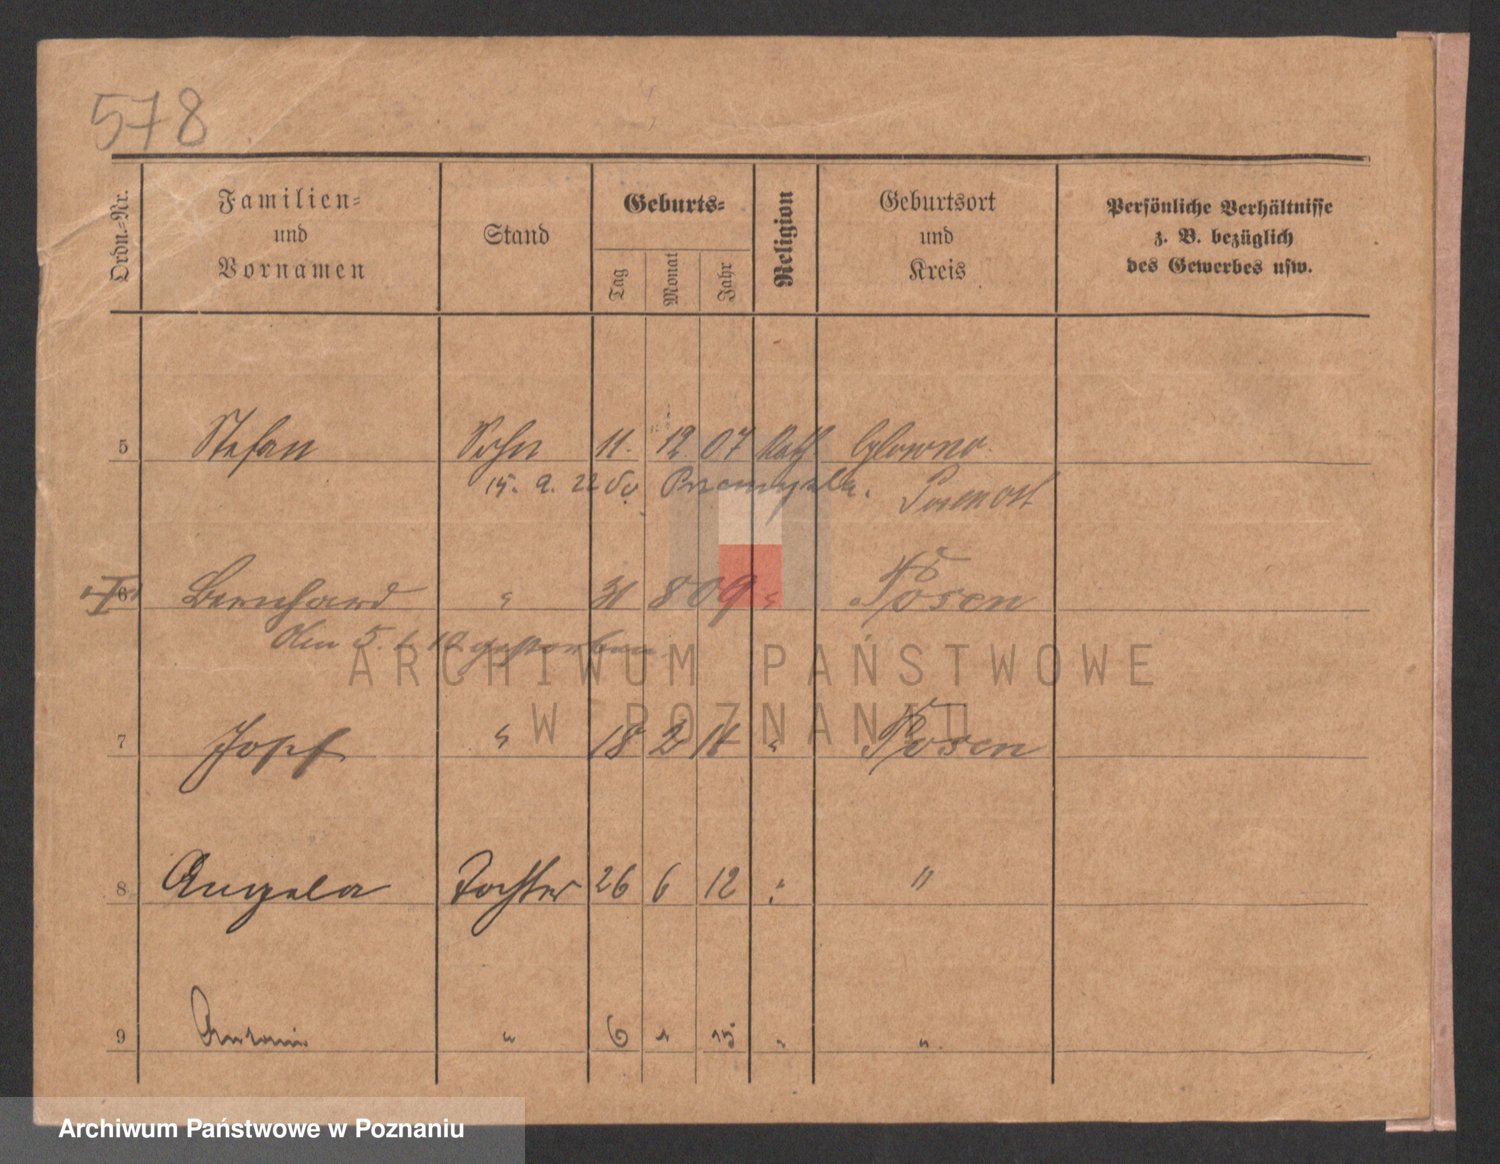 578
Ordn.-Nr.
Familien-
und
Vornamen
Stand
Geburts-
Tag
Monat
Jahr
Religion
Geburtsort
und
Kreis
Persönliche Verhältnisse
z. B. bezüglich
des Gewerbes usw.
5 Stefan Sohn 11. 12 07 Kath Glowno
15. 9. 22
6 Bernhard " 31 8 09 " Posen
Am 5. gestorben
7 Josef " 18 2 11 " Posen
8 Angela Tochter 26 6 12 " "
9 " 6 1 15 " "
ARCHIWUM PAŃSTWOWE
W POZNANIU
Archiwum Państwowe w Poznaniu